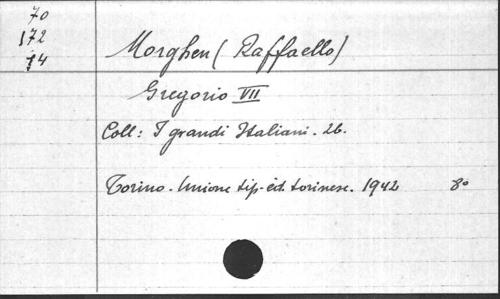 70
172
14
Morghen (Raffaello)
Gregorio VII
Coll: I grandi Italiani. 26.
Torino. Unione tip. ed. torinese. 1942 8º